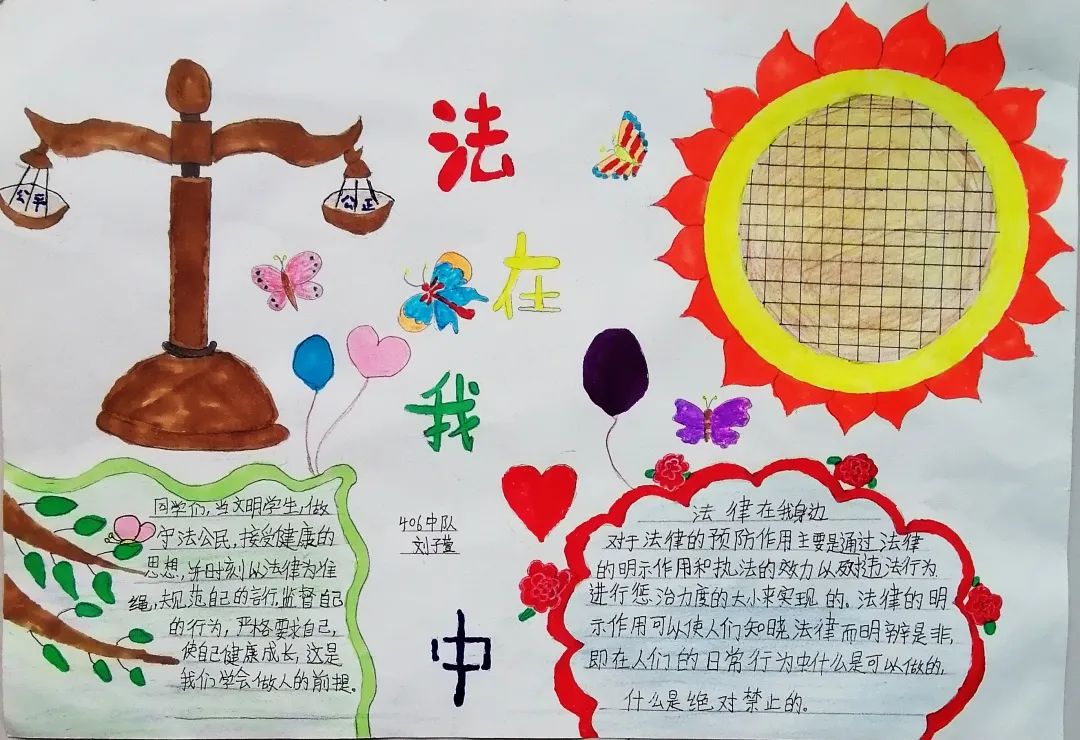 公平
公正
法
在
我
中
同学们,当文明学生,做
守法公民,接受健康的
思想,并时刻以法律为准
绳,规范自己的言行,监督自己
的行为,严格要求自己,
使自己健康成长,这是
我们学会做人的前提。
406中队
法律在我身边
对于法律的预防作用主要是通过法律
的明示作用和执法的效力以及对违法行为
进行惩治力度的大小来实现的。法律的明
示作用可以使人们知晓法律而明辨是非,
即在人们的日常行为中什么是可以做的,
什么是绝对禁止的。